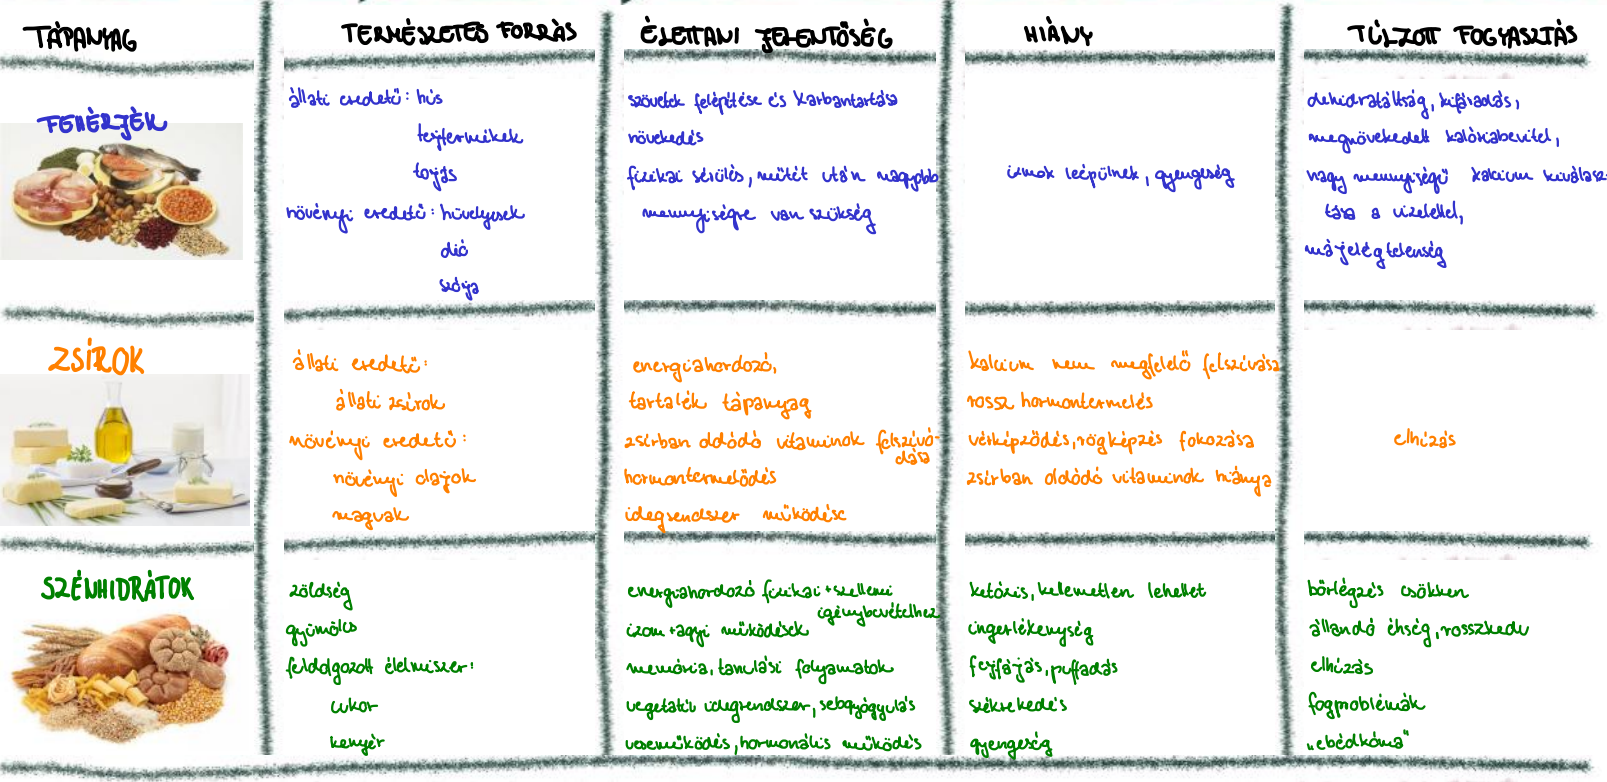 TÁPANYAG
TERMÉSZETES FORRÁS
ÉLETTANI JELENTŐSÉG
HIÁNY
TÚLZOTT FOGYASZTÁS
FEHÉRJÉK
állati eredetű: hús
tejtermékek
tojás
növényi eredetű: hüvelyesek
dió
szója
szövetek felépítése és karbantartása
növekedés
fizikai sérülés, műtét után nagyobb
mennyiségre van szükség
izmok leépülnek, gyengeség
dehidratáltság, kifáradás,
megnövekedett kalóriabevitel,
nagy mennyiségű kalcium kiválasz-
tása a vizelettel,
májelégtelenség
ZSÍROK
állati eredetű:
állati zsírok
növényi eredetű:
növényi olajok
magvak
energiahordozó,
tartalék tápanyag
zsírban oldódó vitaminok felszívó-
dása
hormontermelődés
idegrendszer működése
kalcium nem megfelelő felszívása
rossz hormontermelés
vérképződés, rögképzés fokozása
zsírban oldódó vitaminok hiánya
elhízás
SZÉNHIDRÁTOK
zöldség
gyümölcs
feldolgozott élelmiszer:
cukor
kenyér
energiahordozó fizikai + szellemi
igénybevételhez
izom + agyi működések
memória, tanulási folyamatok
vegetatív idegrendszer, sebgyógyulás
veseműködés, hormonális működés
ketózis, kellemetlen lehellet
ingerlékenység
fejfájás, puffadás
székrekedés
gyengeség
bőrlégzés csökken
állandó éhség, rosszkedv
elhízás
fogproblémák
„ebédkóma"